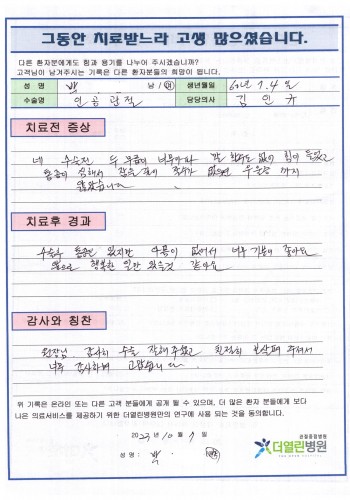 그동안 치료받느라 고생 많으셨습니다.
다른 환자분에게도 힘과 용기를 나누어 주시겠습니까?
고객님이 남겨주시는 기록은 다른 환자분들의 희망이 됩니다.
성 명 박 남 / 여 생년월일 60년 7. 4 일
수술명 인공관절 담당의사 김인규
치료전 증상
네 수술전 두 무릎이 너무아파 잘 없이 힘이 들었고
통증이 심해서 우울증 까지
치료후 경과
수술후 통증은 있지만 아픔이 없어서 너무 기분이 좋아요
앞으로 행복한 일만 있을것 같아요
감사와 칭찬
원장님 감사히 수술 잘해주셨고 친절히 보살펴 주셔서
너무 감사하며 고맙습니다.
위 기록은 온라인 또는 다른 고객 분들에게 공개 될 수 있으며, 더 많은 환자 분들에게 보다
나은 의료서비스를 제공하기 위한 더열린병원만의 연구에 사용 되는 것을 동의합니다.
2023년 10월 7일
성 명 : 박
관절종합병원
더열린병원
THE OPEN HOSPITAL